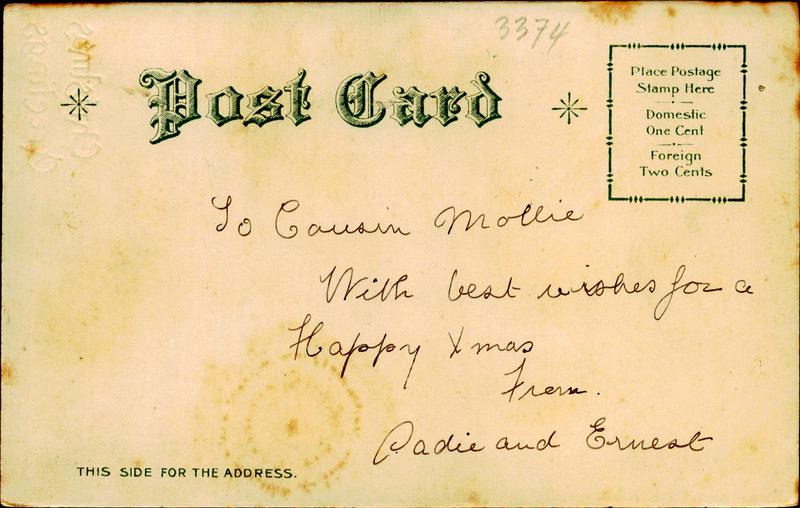 3374
Post Card
Place Postage
Stamp Here
Domestic
One Cent
Foreign
Two Cents
To Cousin Mollie
With best wishes for a
Happy Xmas
From.
Sadie and Ernest
THIS SIDE FOR THE ADDRESS.